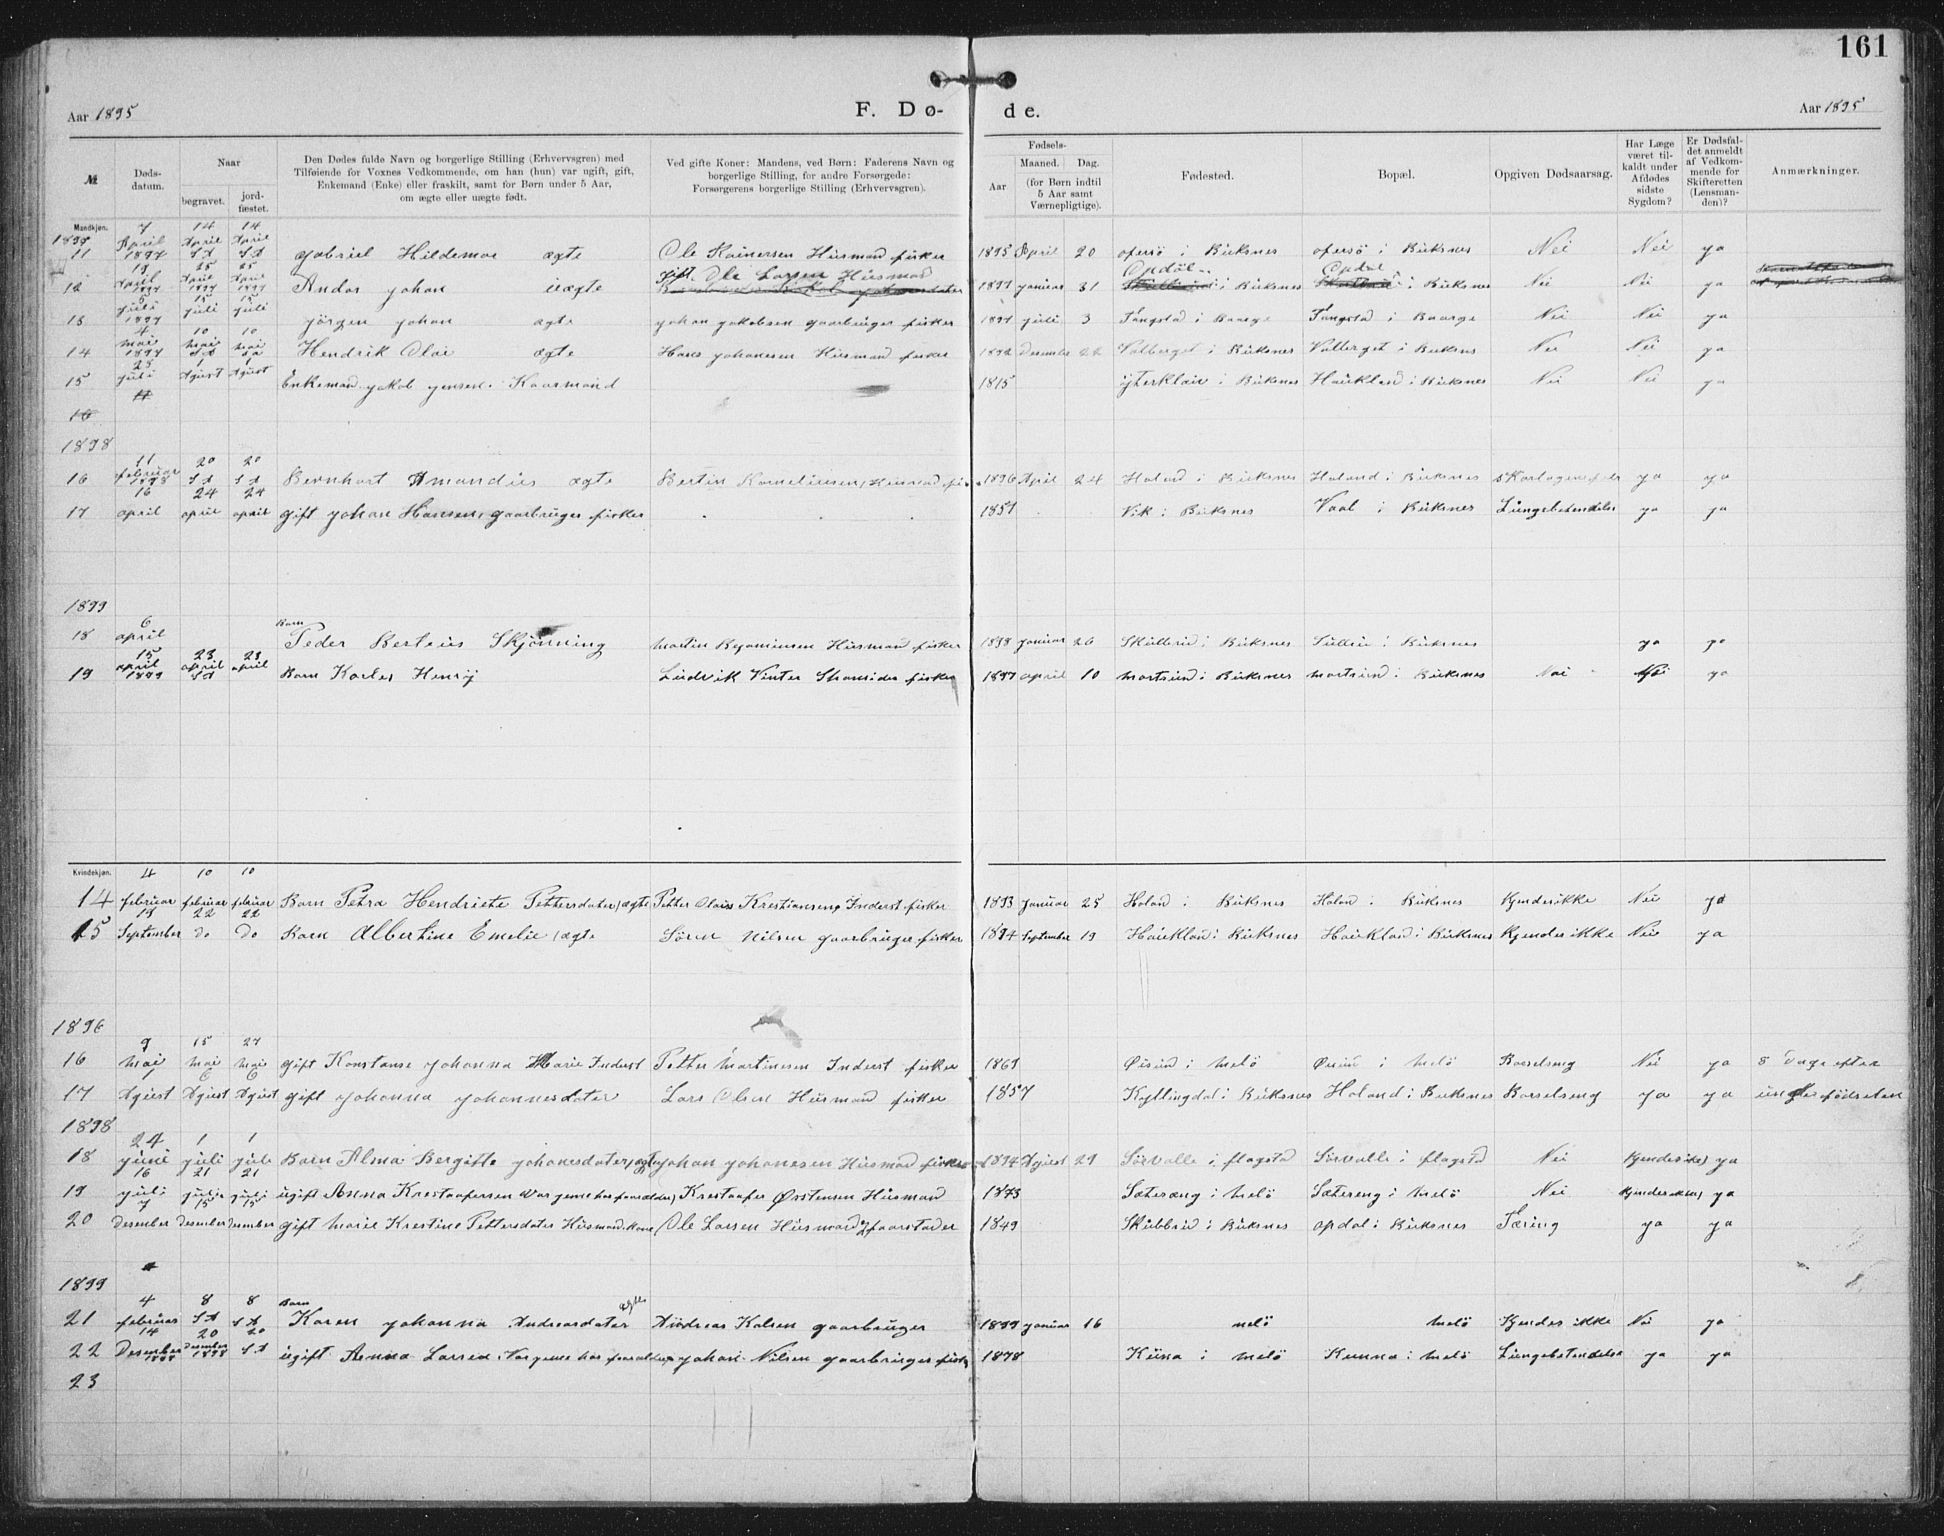 161
Aar 1895 F. Dø- de. Aar 1895
№ Døds-datum. Naar begravet. jord-fæstet. Den Dødes fulde Navn og borgerlige Stilling (Erhvervsgren) med Tilføiende for Voxnes Vedkommende, om han (hun) var ugift, gift, Enkemand (Enke) eller fraskilt, samt for Børn under 5 Aar, om ægte eller uægte født. Ved gifte Koner: Mandens, ved Børn: Faderens Navn og borgerlige Stilling, for andre Forsørgede: Forsørgerens borgerlige Stilling (Erhvervsgren). Fødsels- Aar Maaned. Dag. (for Børn indtil 5 Aar samt Værnepligtige). Fødested. Bopæl. Opgiven Dødsaarsag. Har Læge været til-kaldt under Afdødes sidste Sygdom? Er Dødsfal-det anmeldt af Vedkom-mende for Skifteretten (Lensman-den)? Anmærkninger.
Mandkjøn.
11 7 April 1897 14 April 14 April Gabriel Hildemar ægte Ole Husmand fisker 1895 April 20 i Buksnes i Buksnes Nei Nei ja
12 April 1897 25 April 1897 25 April 1897 Andor Johan uægte gift Ole Larsen Husmand 1897 Januar 31 Opdøl i Buksnes Opdal i Buksnes Nei Nei ja
13 juli 1897 15 juli 15 juli Jörgen Johan ægte Johan Jakobsen gaarbruger fisker 1897 juli 3 Tangstad i Baarge Tangstad i Baarge Nei Nei ja
14 4 mai 1897 10 mai 10 mai Hendrik Olai ægte Hans Johanesen Husmand fisker 1892 Desember 22 Valberget i Buksnes Valberget i Buksnes Nei Nei ja
15 25 juli 1 Agust 1 Agust Enkemand Jakob Jensen Kaarmand 1815 i Buksnes Haukland i Buksnes Nei Nei ja
16
1898
16 11 februar 1898 20 20 Bernhart Amandus ægte Bertin Korneliusen, Husmand 1896 April 24 Holand i Buksnes Holand i Buksnes ja ja
17 16 april 24 april 24 april gift Johan Hansen, gaarbruger fisker 1851 Vik i Buksnes Vaal i Buksnes Lungebetendelse ja ja
1899
18 6 april Barn Peder Berteus Skjönning Martin Benjaminsen Husmand fisker 1898 Januar 26 i Buksnes i Buksnes ja ja
19 15 april 1899 23 april 23 april Barn Karles Henrij Ludvik Vinter fisker 1897 april 10 Mortsund i Buksnes Mortsund i Buksnes Nei Nei ja
Kvindekjøn.
14 4 februar 10 februar 10 februar Barn Petra Hendriete Pettersdater, ægte Petter Olaus Krestiansen, Inderst fisker 1893 Januar 25 Holan i Buksnes Holan i Buksnes Kjendes ikke Nei ja
15 19 September 22 do 22 do Barn Albertine Emelie, ægte Sören Nilsen gaarbruger fisker 1894 September 19 Haukland i Buksnes Haukland i Buksnes Kjendes ikke Nei ja
1896
16 9 Mai 15 mai 24 mai gift Konstanse Johanna Marie Inderst Petter Martinesen Inderst fisker 1869 Ösund i Melö Ösund i Melö Barselseng Nei ja 8 Dage efter
17 Agust 6 Agust 6 Agust gift Johanna Johannesdater Lars Olsen Husmand fisker 1857 Kyllingdal i Buksnes Holand i Buksnes Barselseng ja ja fødselen
1898
18 24 juni 1 juli 1 juli Barn Alma Bergitte Johanesdater, ægte Johan Johanesen Husmand fisker 1894 Agust 29 Sörvalle i flagstad Sörvalle i flagstad Nei Kjendes ikke ja
19 16 juli 21 juli 21 juli ugift Anna Krestoafersen (Var hos foræeldre) Krestoafer Östensen Husmand 1873 Sætereng i Melö Sætereng i Melö Nei Kjendes ikke ja
20 7 Desember 15 Desember 15 Desember gift Marie Krestine Pettersdater Husmand Kone Ole Larsen Husmand 1849 i Buksnes opdal i Buksnes Tæring ja ja
1899
21 4 februar 8 8 Barn Karen Johanna Andreasdater ægte Andreas Kalsen gaarbruger 1899 Januar 16 melö Melö Kjendes ikke Nei ja
22 14 Desember 1898 20 Desember 1898 20 ugift Anna Larsen Johan Nilsen gaarbruger fisker 1878 Kuna i Melö Kunna i Melö Lungebetendelse ja ja
23